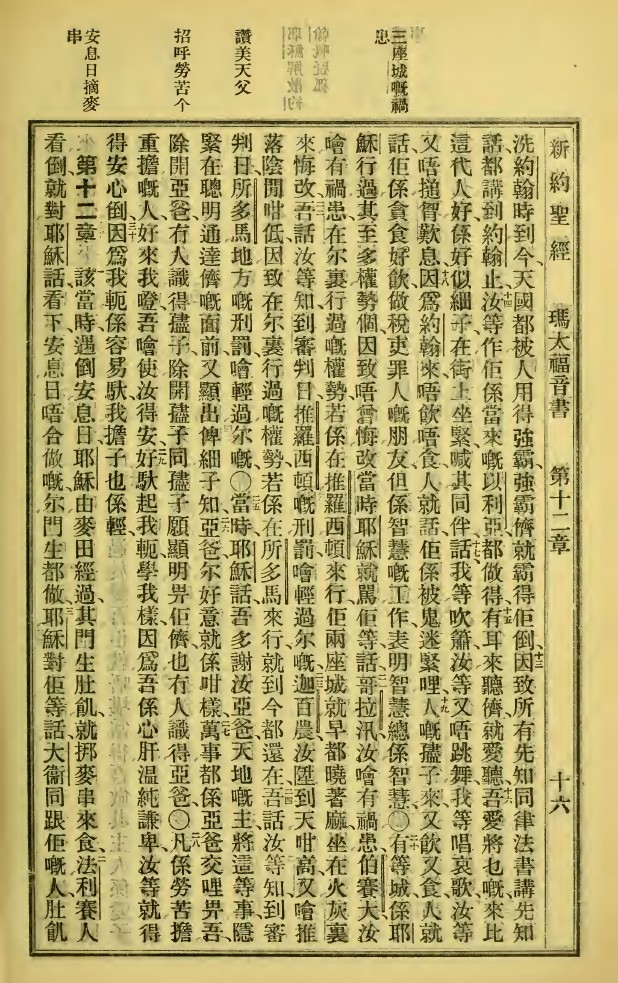 新約聖經 瑪太福音書 第十二章 十六
三座城嘅禍
患
讚美天父
招呼勞苦个
安息日摘麥
串
洗約翰時到今天國都被人用得強霸強霸儕就霸得佢倒十三因致所有先知同律法書講先知
話都講到約翰止十四汝等作佢係當來嘅以利亞都做得十五有耳來聽儕就愛聽十六吾愛將乜嘅來比
這代人好係好似細子在街上坐緊喊其同伴十七話我等吹簫汝等又唔跳舞我等唱哀歌汝等
又唔搥智歎息十八因爲約翰來唔飲唔食人就話佢係被鬼迷緊哩十九人嘅孻子來又飲又食人就
話佢係貪食好飲做稅吏罪人嘅朋友但係智慧嘅工作表明智慧總係智慧〇二十有等城係耶
穌行過其至多權勢個因致唔曾悔改當時耶穌就罵佢等二一話哥拉汛汝噲有禍患伯賽大汝
噲有禍患在尔裏行過嘅權勢若係在推羅西頓來行佢兩座城就早都曉著麻坐在火灰裏
來悔改二二吾話汝等知到審判日推羅西頓嘅刑罰噲輕過尔嘅二三迦百農汝陞到天咁高又噲推
落陰間咁低因致在尔裏行過嘅權勢若係在所多馬來行就到今都還在二四吾話汝等知到審
判日所多馬地方嘅刑罰噲輕過尔嘅〇二五當時耶穌話吾多謝汝亞爸天地嘅主將這等事隱
緊在聰明通達儕嘅面前又顯出俾細子知二六亞爸尔好意就係咁樣二七萬事都係亞爸交哩畀吾
除開亞爸冇人識得孻子除開孻子同孻子願顯明畀佢儕也冇人識得亞爸〇二八凡係勞苦擔
重擔嘅人好來我噔吾噲使汝得安好二九馱起我軛學我樣因爲吾係心肝温純謙卑汝等就得
得安心倒三十因爲我軛係容易馱我擔子也係輕
第十二章 一該當時遇倒安息日耶穌由麥田經過其門生肚飢就挷麥串來食二法利賽人
看倒就對耶穌話看下安息日唔合做嘅尔門生都做三耶穌對佢等話大衞同跟佢嘅人肚飢